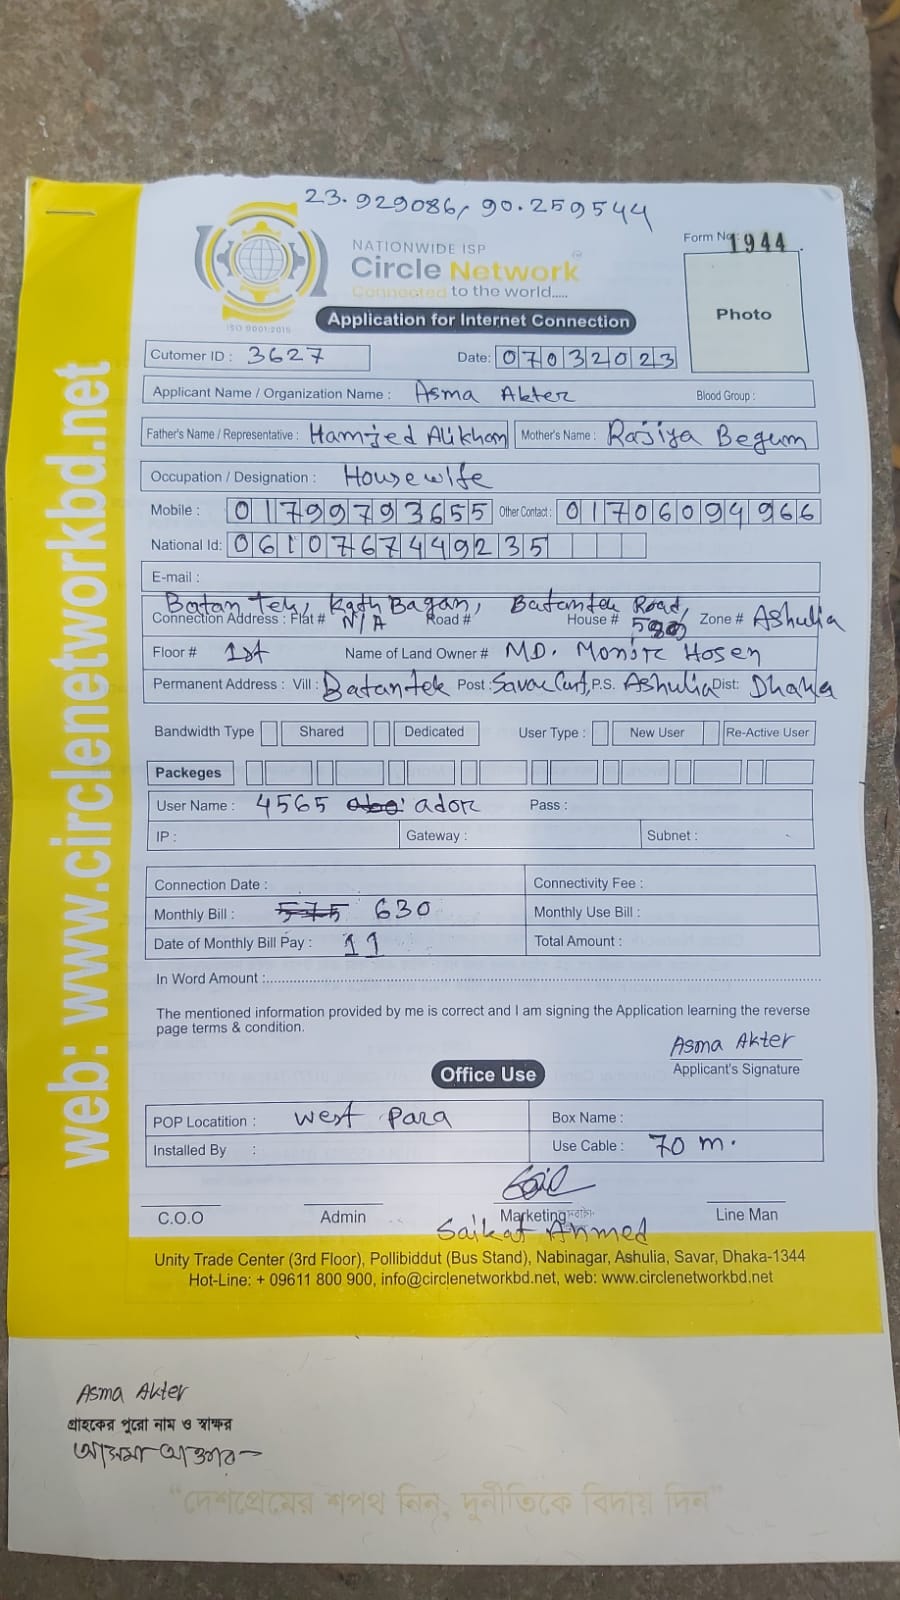 23.929086, 90.259544
NATIONWIDE ISP
Circle Network
Connected to the world.....
ISO 9001:2015
Form No: 1944
Application for Internet Connection
Photo
Cutomer ID : 3627 Date: 07032023
Applicant Name / Organization Name : Asma Akter Blood Group :
Father's Name / Representative : Hamjed Alikhan Mother's Name : Rajiya Begum
Occupation / Designation : Housewife
Mobile : 01799793655 Other Contact : 01706094966
National Id: 0610767449235
E-mail :
Batan Tek, Kath Bagan, Batantek Road,
Connection Address : Flat # N/A Road # House # Zone # Ashulia
Floor # 1st Name of Land Owner # MD. Monir Hosen
Permanent Address : Vill : Batantek Post : Savar Cant, P.S. Ashulia Dist: Dhaka
Bandwidth Type Shared Dedicated User Type : New User Re-Active User
Packeges
User Name : 4565 ador Pass :
IP : Gateway : Subnet :
Connection Date : Connectivity Fee :
Monthly Bill : 575 630 Monthly Use Bill :
Date of Monthly Bill Pay : 11 Total Amount :
In Word Amount :
The mentioned information provided by me is correct and I am signing the Application learning the reverse
page terms & condition.
Asma Akter
Applicant's Signature
Office Use
POP Locatition : West Para Box Name :
Installed By : Use Cable : 70 m.
C.O.O Admin Marketing Line Man
Saikat Ahmed
Unity Trade Center (3rd Floor), Pollibiddut (Bus Stand), Nabinagar, Ashulia, Savar, Dhaka-1344
Hot-Line: + 09611 800 900, info@circlenetworkbd.net, web: www.circlenetworkbd.net
web: www.circlenetworkbd.net
Asma Akter
গ্রাহকের পুরো নাম ও স্বাক্ষর
আসমা আক্তার
“দেশপ্রেমের শপথ নিন, দুর্নীতিকে বিদায় দিন”